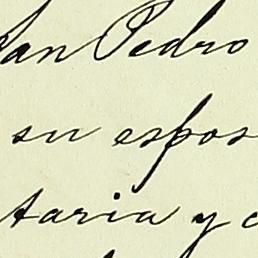 San Pedro
su espos
taria y c